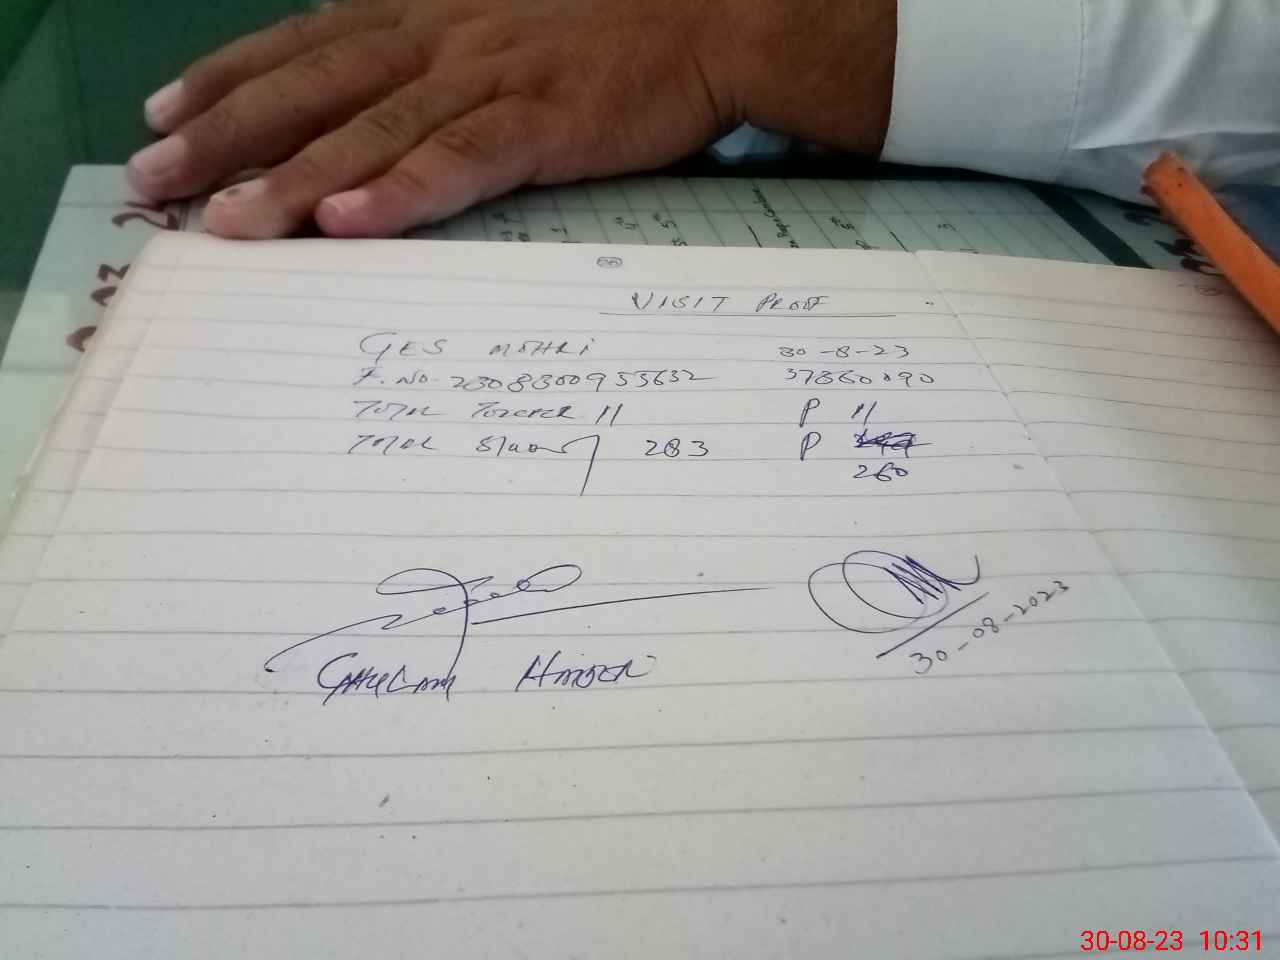 VISIT PROOF
GES MOHRI 30-8-23
F. No. 2308300955632 37360090
TOTAL TEACHER 11 P 11
TOTAL 283 P
260
GHULAM HAIDER
30-08-2023
30-08-23 10:31